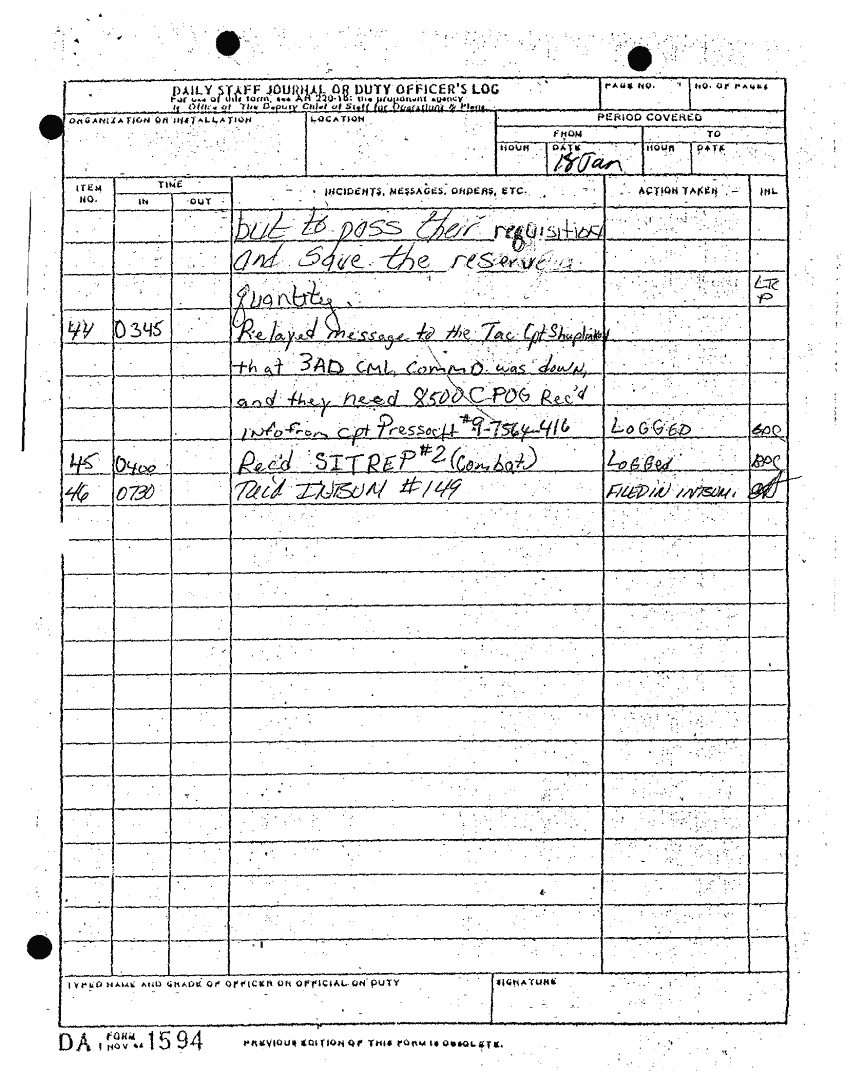 DAILY STAFF JOURNAL OR DUTY OFFICER'S LOG
For use of this form, see AR 220-15; the proponent agency
is Office of The Deputy Chief of Staff for Operations & Plans.
PAGE NO.
NO. OF PAGES
ORGANIZATION OR INSTALLATION
LOCATION
PERIOD COVERED
FROM
TO
HOUR
DATE
HOUR
DATE
18 Jan
ITEM NO.
TIME
IN
OUT
INCIDENTS, MESSAGES, ORDERS, ETC.
ACTION TAKEN
INL
but to pass their requisition
and save the reserve
quantity.
44 0345 Relayed message to the Tac Cpt
that 3AD CML Commo was down,
and they need 8500 CPOG Rec'd
info from Cpt #9-7564-416 LOGGED
45 0400 Rec'd SITREP #2 (Combat) LOGGED
46 0730 INTSUM #149 FILED IN INTSUM.
TYPED NAME AND GRADE OF OFFICER OR OFFICIAL ON DUTY
SIGNATURE
DA FORM 1 NOV 1594
PREVIOUS EDITION OF THIS FORM IS OBSOLETE.